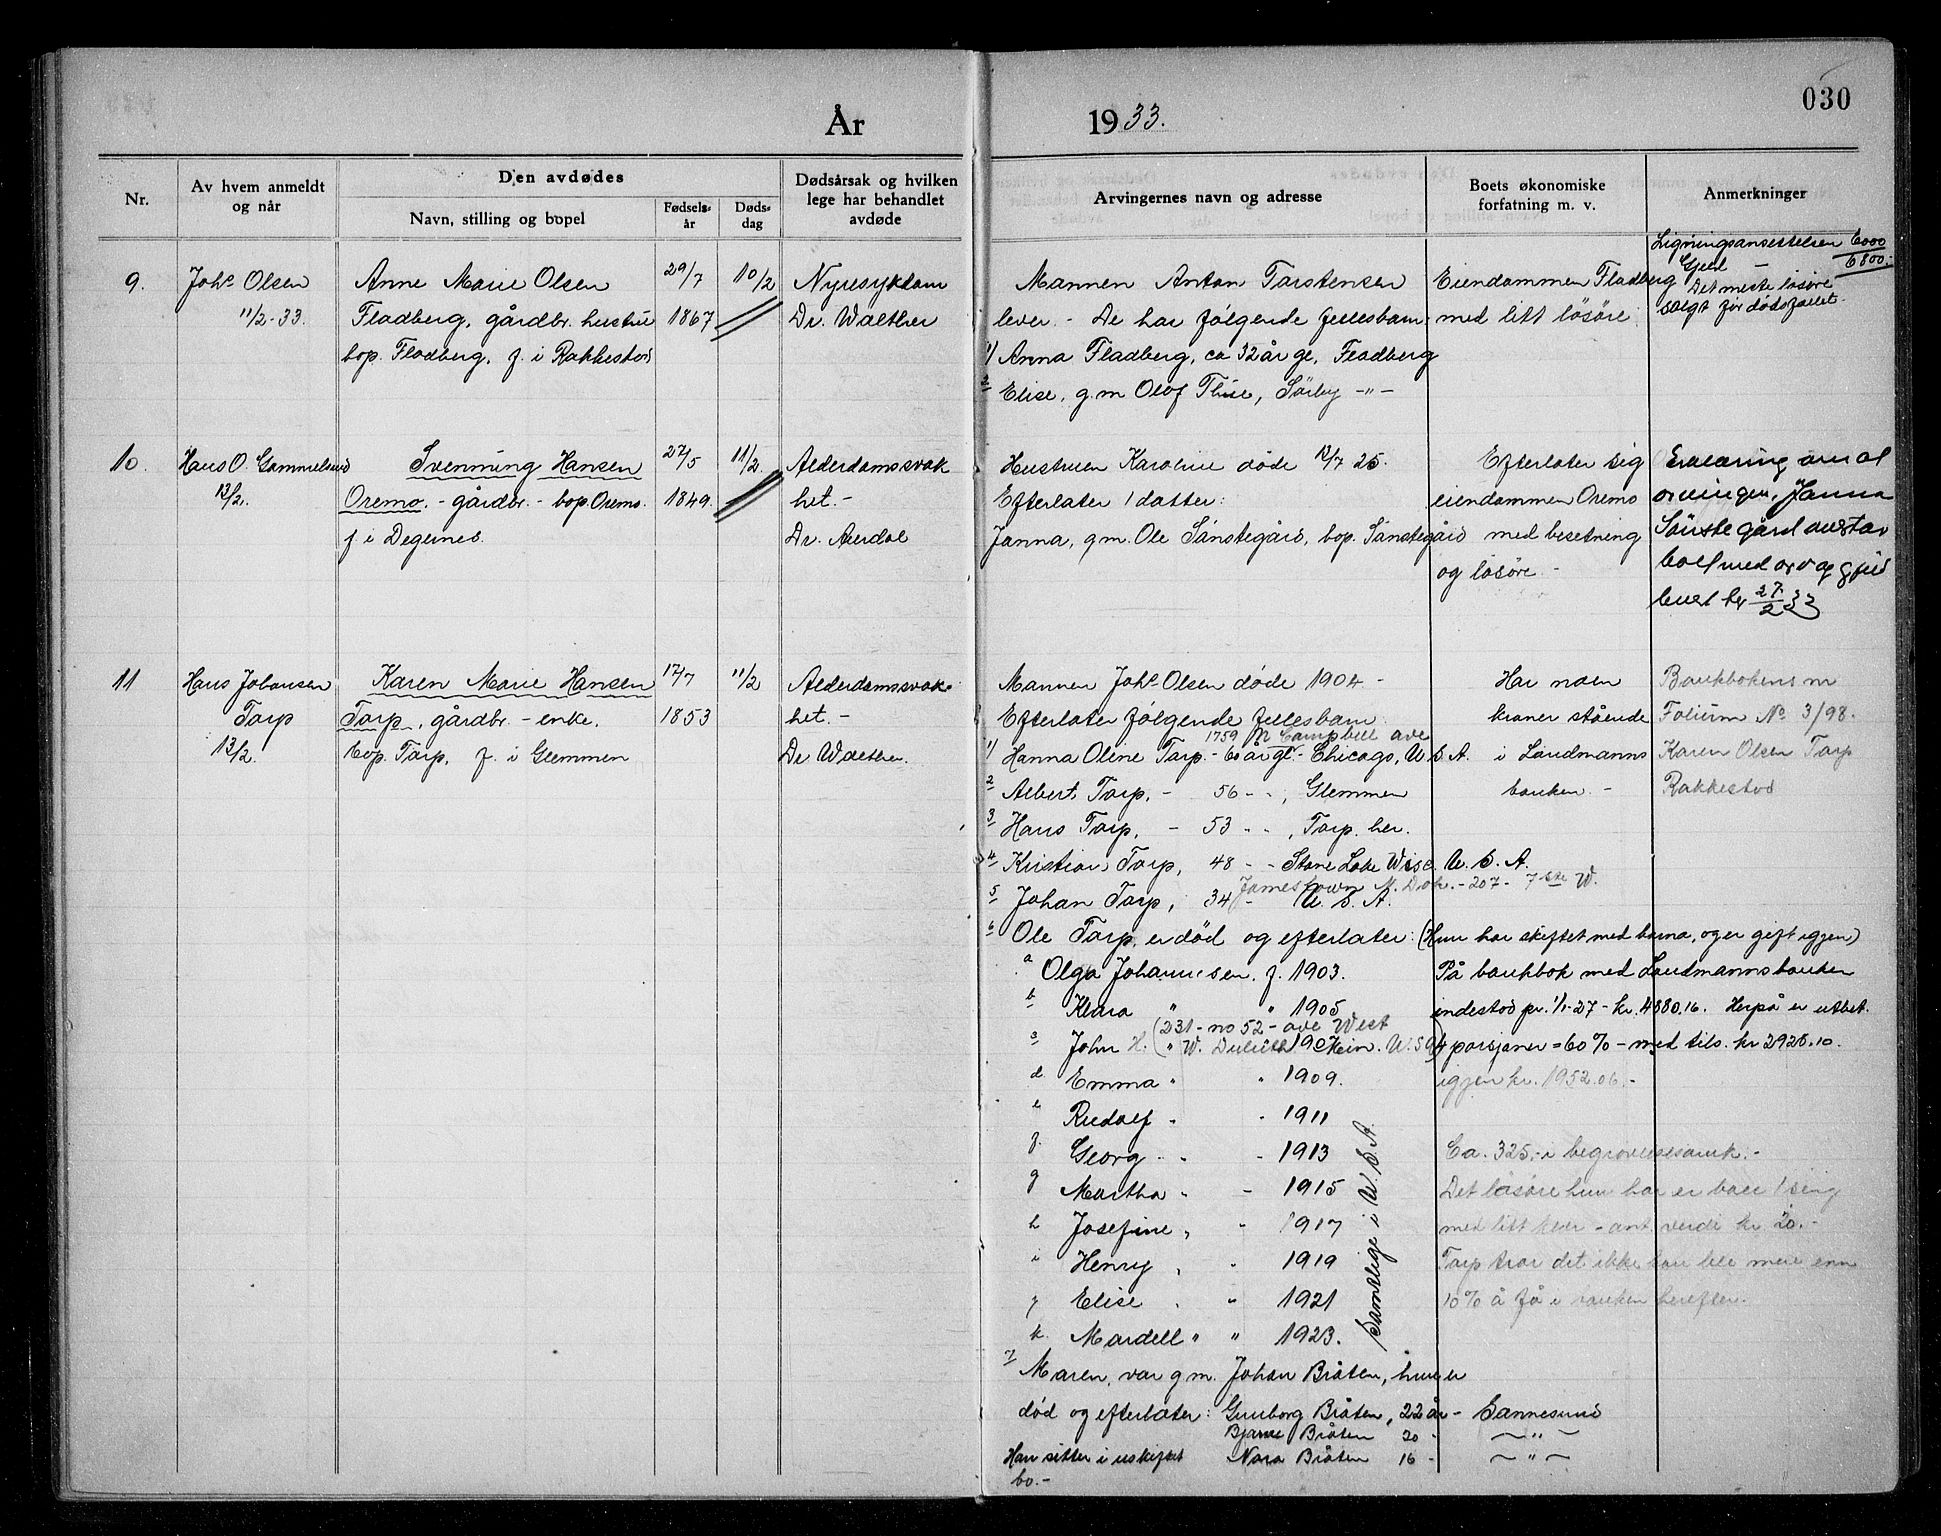 030
År 1933.
Nr.
Av hvem anmeldt og når
Den avdødes
Navn, stilling og bopel
Fødsels-år
Døds-dag
Dødsårsak og hvilken lege har behandlet avdøde
Arvingernes navn og adresse
Boets økonomiske forfatning m. v.
Anmerkninger
9.
Johs Olsen
11/2-33.
Anne Marie Olsen
Fladberg, gårdbr. hustru
bop. Fladberg, f. i Rakkestad
29/7
1867
10/2
Nyresykdom
Dr. Walther
Mannen Anton Torstensen
lever. - De har følgende fellesbarn
1) Anna Fladberg, ca 32 år gl, Fladberg
2 Elise, g.m Olof Thise, Sörby -"-
Eiendommen Fladberg
med litt løsøre.
Ligningsansettelsen 6000
Gjeld - 6800.-
Det meste løsøre
solgt før dødsfallet.
10.
Hans O. Gammelsrud
13/2.
Svenning Hansen
Oremo. - gårdbr. - bop. Oremo.
f i Degernes.
27/5
1849.
11/2
Alderdomssvak
het. -
Dr. Aardal
Hustruen Karoline döde 12/7 25.
Efterlater 1 datter:
Janna, g m. Ole Sönstegård, bop. Sönstegård
Efterlater sig
eiendommen Oremo
med besetning
og løsøre -
Erklæring om at
arvingen, Janna
Sönstegård overtar
boet med arv og gjeld
27/2 33
11
Hans Johansen
Torp
13/2.
Karen Marie Hansen
Torp, gårdbr. - enke,
bop. Torp, f. i Glemmen
17/7
1853
11/2
Alderdomssvak-
het. -
Dr Walther.
Mannen Johs Olsen döde 1904. -
Efterlater følgende fellesbarn
1759 N Campbell ave
1) Hanna Oline Torp - år gl. - Chicago, U. S. A.
2 Albert Torp, - 56 - - , Glemmen
3 Hans Torp, - 53 - - , Torp. her.
4 Kristian Torp, 48 - - Stone Lake Wisc. U. S. A.
Jamestown N. Dak. - 207 - 7 ste W.
5 Johan Torp, 34 - U. S. A.
6 Ole Torp, er død og efterlater: (Hun har skiftet med barna, og er gift igjen)
a Olga Johannesen, f. 1903.
b Klara " " 1905
(231 - no 52 - ave West
c John H. " W. Duluth 190 Mein. U. S A)
d Emma " " 1909.
e Rudolf " - 1911
f. Georg " - 1913
g Martha " - 1915
h Josefine " " 1917
i Henry " " 1919
j Elise " " 1921
k. Mardell " " 1923.
Samtlige i U. S. A.
7 Maren, var g m. Johan Bråten, hun er
død og efterlater: Gunborg Bråten, 22 år - Sannesund
Bjarne Bråten 20 - -"-
Han sitter i uskiftet Nora Bråten 16 - -"-
bo. -
Har noen
kroner stående
i Landmanns
banken -
Bankbokens nr
Folium No 3/98.
Karen Olsen Torp
Rakkestad
På bankbok med Landmannsbanken
indestod pr. 1/1-27 - kr. 4880.16. Herpå er utbet.
4 porsjoner = 60% - med tils. kr 2928.10.
igjen kr. 1952.06. -
Ca. 325.- i begravelsesomk. -
Det løsøre hun har er bare 1 seng
med litt klær - ant. verdi kr 20.-
Torp tror det ikke kan bli mere enn
10% å få i banken herefter.